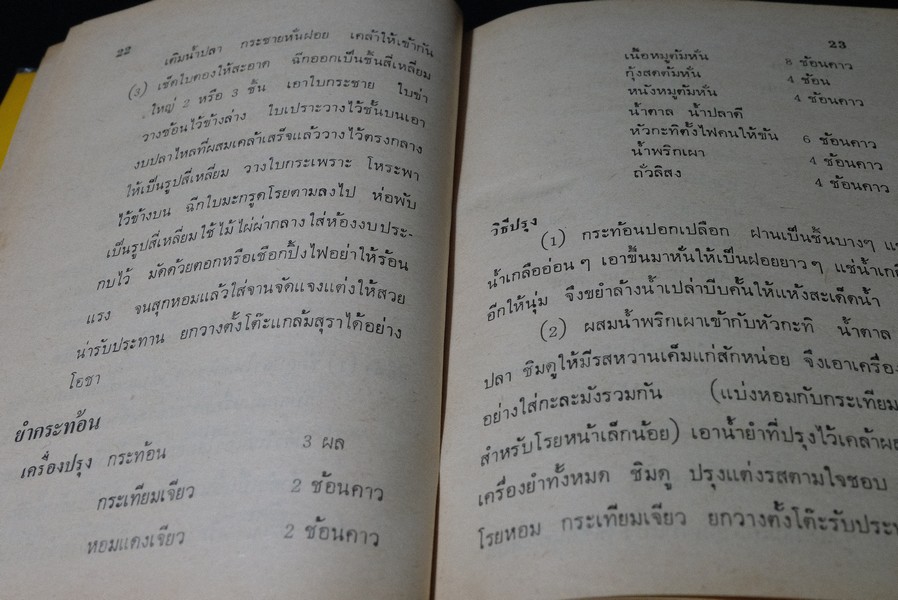 22
เติมน้ำปลา กระชายหั่นฝอย เคล้าให้เข้ากัน
(3) เช็ดใบตองให้สะอาด ฉีกออกเป็นชิ้นสี่เหลี่ยม
ใหญ่ 2 หรือ 3 ชั้น เอาใบกระชาย ใบข่า
วางซ้อนไว้ข้างล่าง ใบเปราะวางไว้ชั้นบนเอา
งบปลาไหลที่ผสมเคล้าเสร็จแล้ววางไว้ตรงกลาง
ให้เป็นรูปสี่เหลี่ยม วางใบกระเพราะ โหระพา
ไว้ข้างบน ฉีกใบมะกรูดโรยตามลงไป ห่อพับ
เป็นรูปสี่เหลี่ยมใช้ไม้ไผ่ผ่ากลางใส่ห้องงบประ-
กบไว้ มัดด้วยตอกหรือเชือกปิ้งไฟอย่าให้ร้อน
แรง จนสุกหอมแล้วใส่จานจัดแจงแต่งให้สวย
น่ารับประทาน ยกวางตั้งโต๊ะแกล้มสุราได้อย่าง
โอชา
ยำกระท้อน
เครื่องปรุง กระท้อน 3 ผล
กระเทียมเจียว 2 ช้อนคาว
หอมแดงเจียว 2 ช้อนคาว
23
เนื้อหมูต้มหั่น 8 ช้อนคาว
กุ้งสดต้มหั่น 4 ช้อน
หนังหมูต้มหั่น 4 ช้อนคาว
น้ำตาล น้ำปลาดี
หัวกะทิตั้งไฟคนให้ข้น 6 ช้อนคาว
น้ำพริกเผา 4 ช้อนคาว
ถั่วลิสง 4 ช้อนคาว
วิธีปรุง
(1) กระท้อนปอกเปลือก ฝานเป็นชิ้นบางๆ
น้ำเกลืออ่อนๆ เอาขึ้นมาหั่นให้เป็นฝอยยาวๆ แช่น้ำเกลือ
อีกให้นุ่ม จึงขยำล้างน้ำเปล่าบีบคั้นให้แห้งสะเด็ดน้ำ
(2) ผสมน้ำพริกเผาเข้ากับหัวกะทิ น้ำตาล
ปลา ชิมดูให้มีรสหวานเค็มแก่สักหน่อย จึงเอาเครื่อง
อย่างใส่กะละมังรวมกัน (แบ่งหอมกับกระเทียม
สำหรับโรยหน้าเล็กน้อย) เอาน้ำยำที่ปรุงไว้เคล้าผสม
เครื่องยำทั้งหมด ชิมดู ปรุงแต่งรสตามใจชอบ
โรยหอม กระเทียมเจียว ยกวางตั้งโต๊ะรับประ